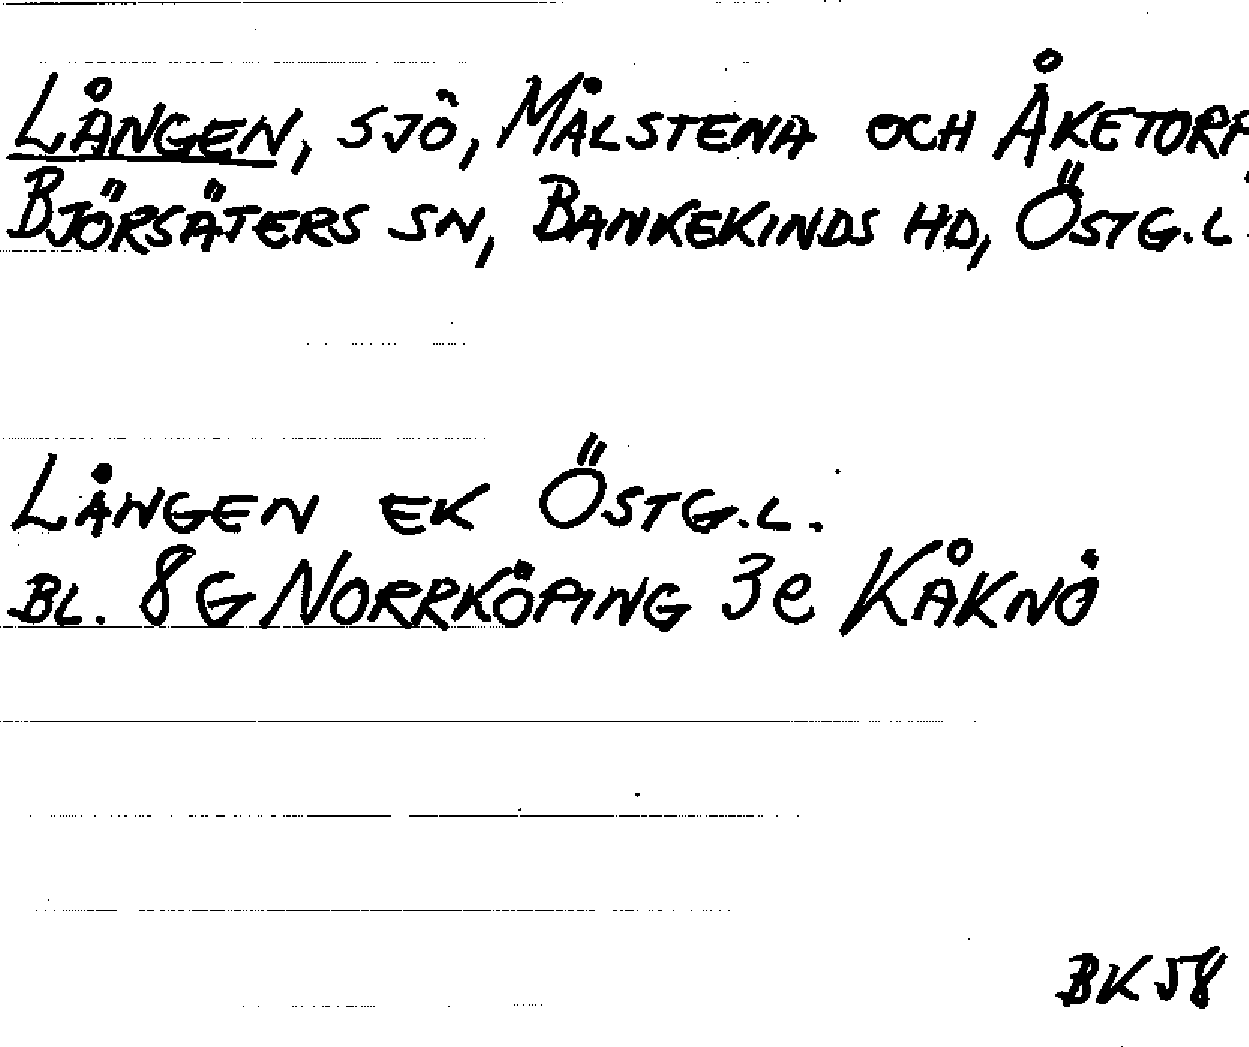 LÅNGEN, SJÖ, MÅLSTENA OCH ÅKETORP
BJÖRSÄTERS SN, BANKEKINDS HD, ÖSTG.L.
LÅNGEN EK ÖSTG.L.
BL. 8G NORRKÖPING 3e KÅKNÖ
BK58